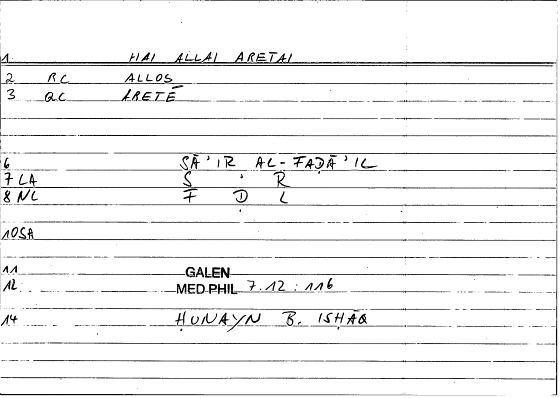 1 HAI ALLAI ARETAI
2 RC ALLOS
3 QC ARETĒ
6 SĀʾIR AL-FAḌĀʾIL
7 LA S ʾ R
8 NL F Ḍ L
10SA
11 GALEN
12 MED PHIL 7.12 : 116
14 ḤUNAYN B. ISḤĀQ